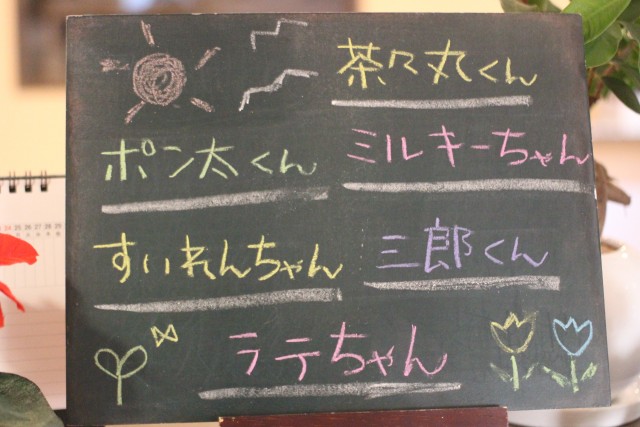 茶々丸くん
ポン太くん
ミルキーちゃん
すいれんちゃん
三郎くん
ラテちゃん